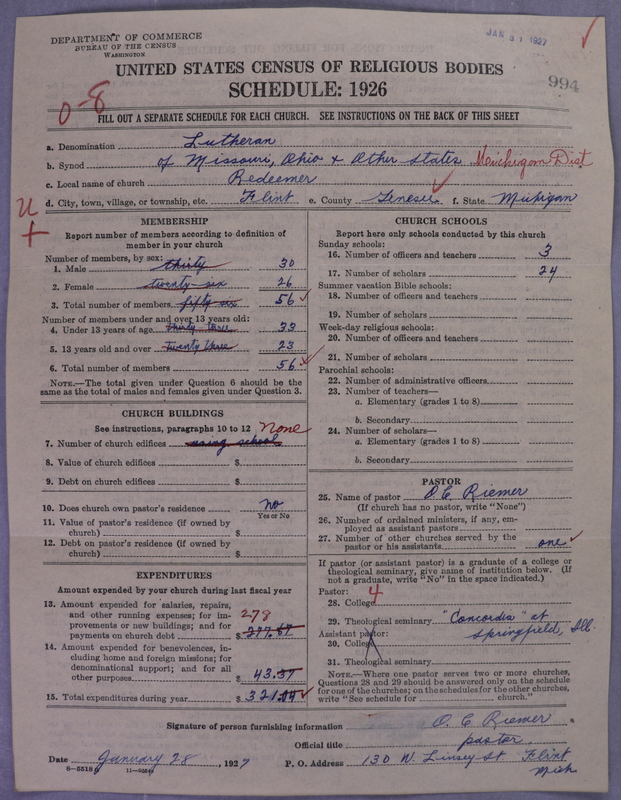 DEPARTMENT OF COMMERCE
BUREAU OF THE CENSUS
WASHINGTON
JAN 31 1927
994
UNITED STATES CENSUS OF RELIGIOUS BODIES
SCHEDULE: 1926
0-8
FILL OUT A SEPARATE SCHEDULE FOR EACH CHURCH. SEE INSTRUCTIONS ON THE BACK OF THIS SHEET
a. Denomination Lutheran
b. Synod of Missouri, Ohio & Other States Michigan Dist
c. Local name of church Redeemer
d. City, town, village, or township, etc. Flint e. County Genesee f. State Michigan
U
+
MEMBERSHIP
Report number of members according to definition of
member in your church
Number of members, by sex:
1. Male thirty 30
2. Female twenty-six 26
3. Total number of members fifty six 56
Number of members under and over 13 years old:
4. Under 13 years of age thirty three 33
5. 13 years old and over twenty three 23
6. Total number of members 56
NOTE.—The total given under Question 6 should be the
same as the total of males and females given under Question 3.
CHURCH BUILDINGS
See instructions, paragraphs 10 to 12 None
7. Number of church edifices using school
8. Value of church edifices $
9. Debt on church edifices $
10. Does church own pastor's residence no
Yes or No
11. Value of pastor's residence (if owned by
church) $
12. Debt on pastor's residence (if owned by
church) $
EXPENDITURES
Amount expended by your church during last fiscal year
13. Amount expended for salaries, repairs,
and other running expenses; for im- 278
provements or new buildings; and for
payments on church debt $ 277.67
14. Amount expended for benevolences, in-
cluding home and foreign missions; for
denominational support; and for all
other purposes $ 43.37
15. Total expenditures during year $ 321.04
CHURCH SCHOOLS
Report here only schools conducted by this church
Sunday schools:
16. Number of officers and teachers 3
17. Number of scholars 24
Summer vacation Bible schools:
18. Number of officers and teachers
19. Number of scholars
Week-day religious schools:
20. Number of officers and teachers
21. Number of scholars
Parochial schools:
22. Number of administrative officers
23. Number of teachers—
a. Elementary (grades 1 to 8)
b. Secondary
24. Number of scholars—
a. Elementary (grades 1 to 8)
b. Secondary
PASTOR
25. Name of pastor O. C. Riemer
(If church has no pastor, write "None")
26. Number of ordained ministers, if any, em-
ployed as assistant pastors
27. Number of other churches served by the
pastor or his assistants one
If pastor (or assistant pastor) is a graduate of a college or
theological seminary, give name of institution below. (If
not a graduate, write "No" in the space indicated.)
Pastor: 4
28. College
29. Theological seminary "Concordia" at
Assistant pastor: Springfield, Ill.
30. College
31. Theological seminary
NOTE.—Where one pastor serves two or more churches,
Questions 28 and 29 should be answered only on the schedule
for one of the churches; on the schedules for the other churches,
write "See schedule for church."
Signature of person furnishing information O. C. Riemer
Official title pastor
Date January 28, 1927 P. O. Address 130 W. Linsey St Flint
Mich